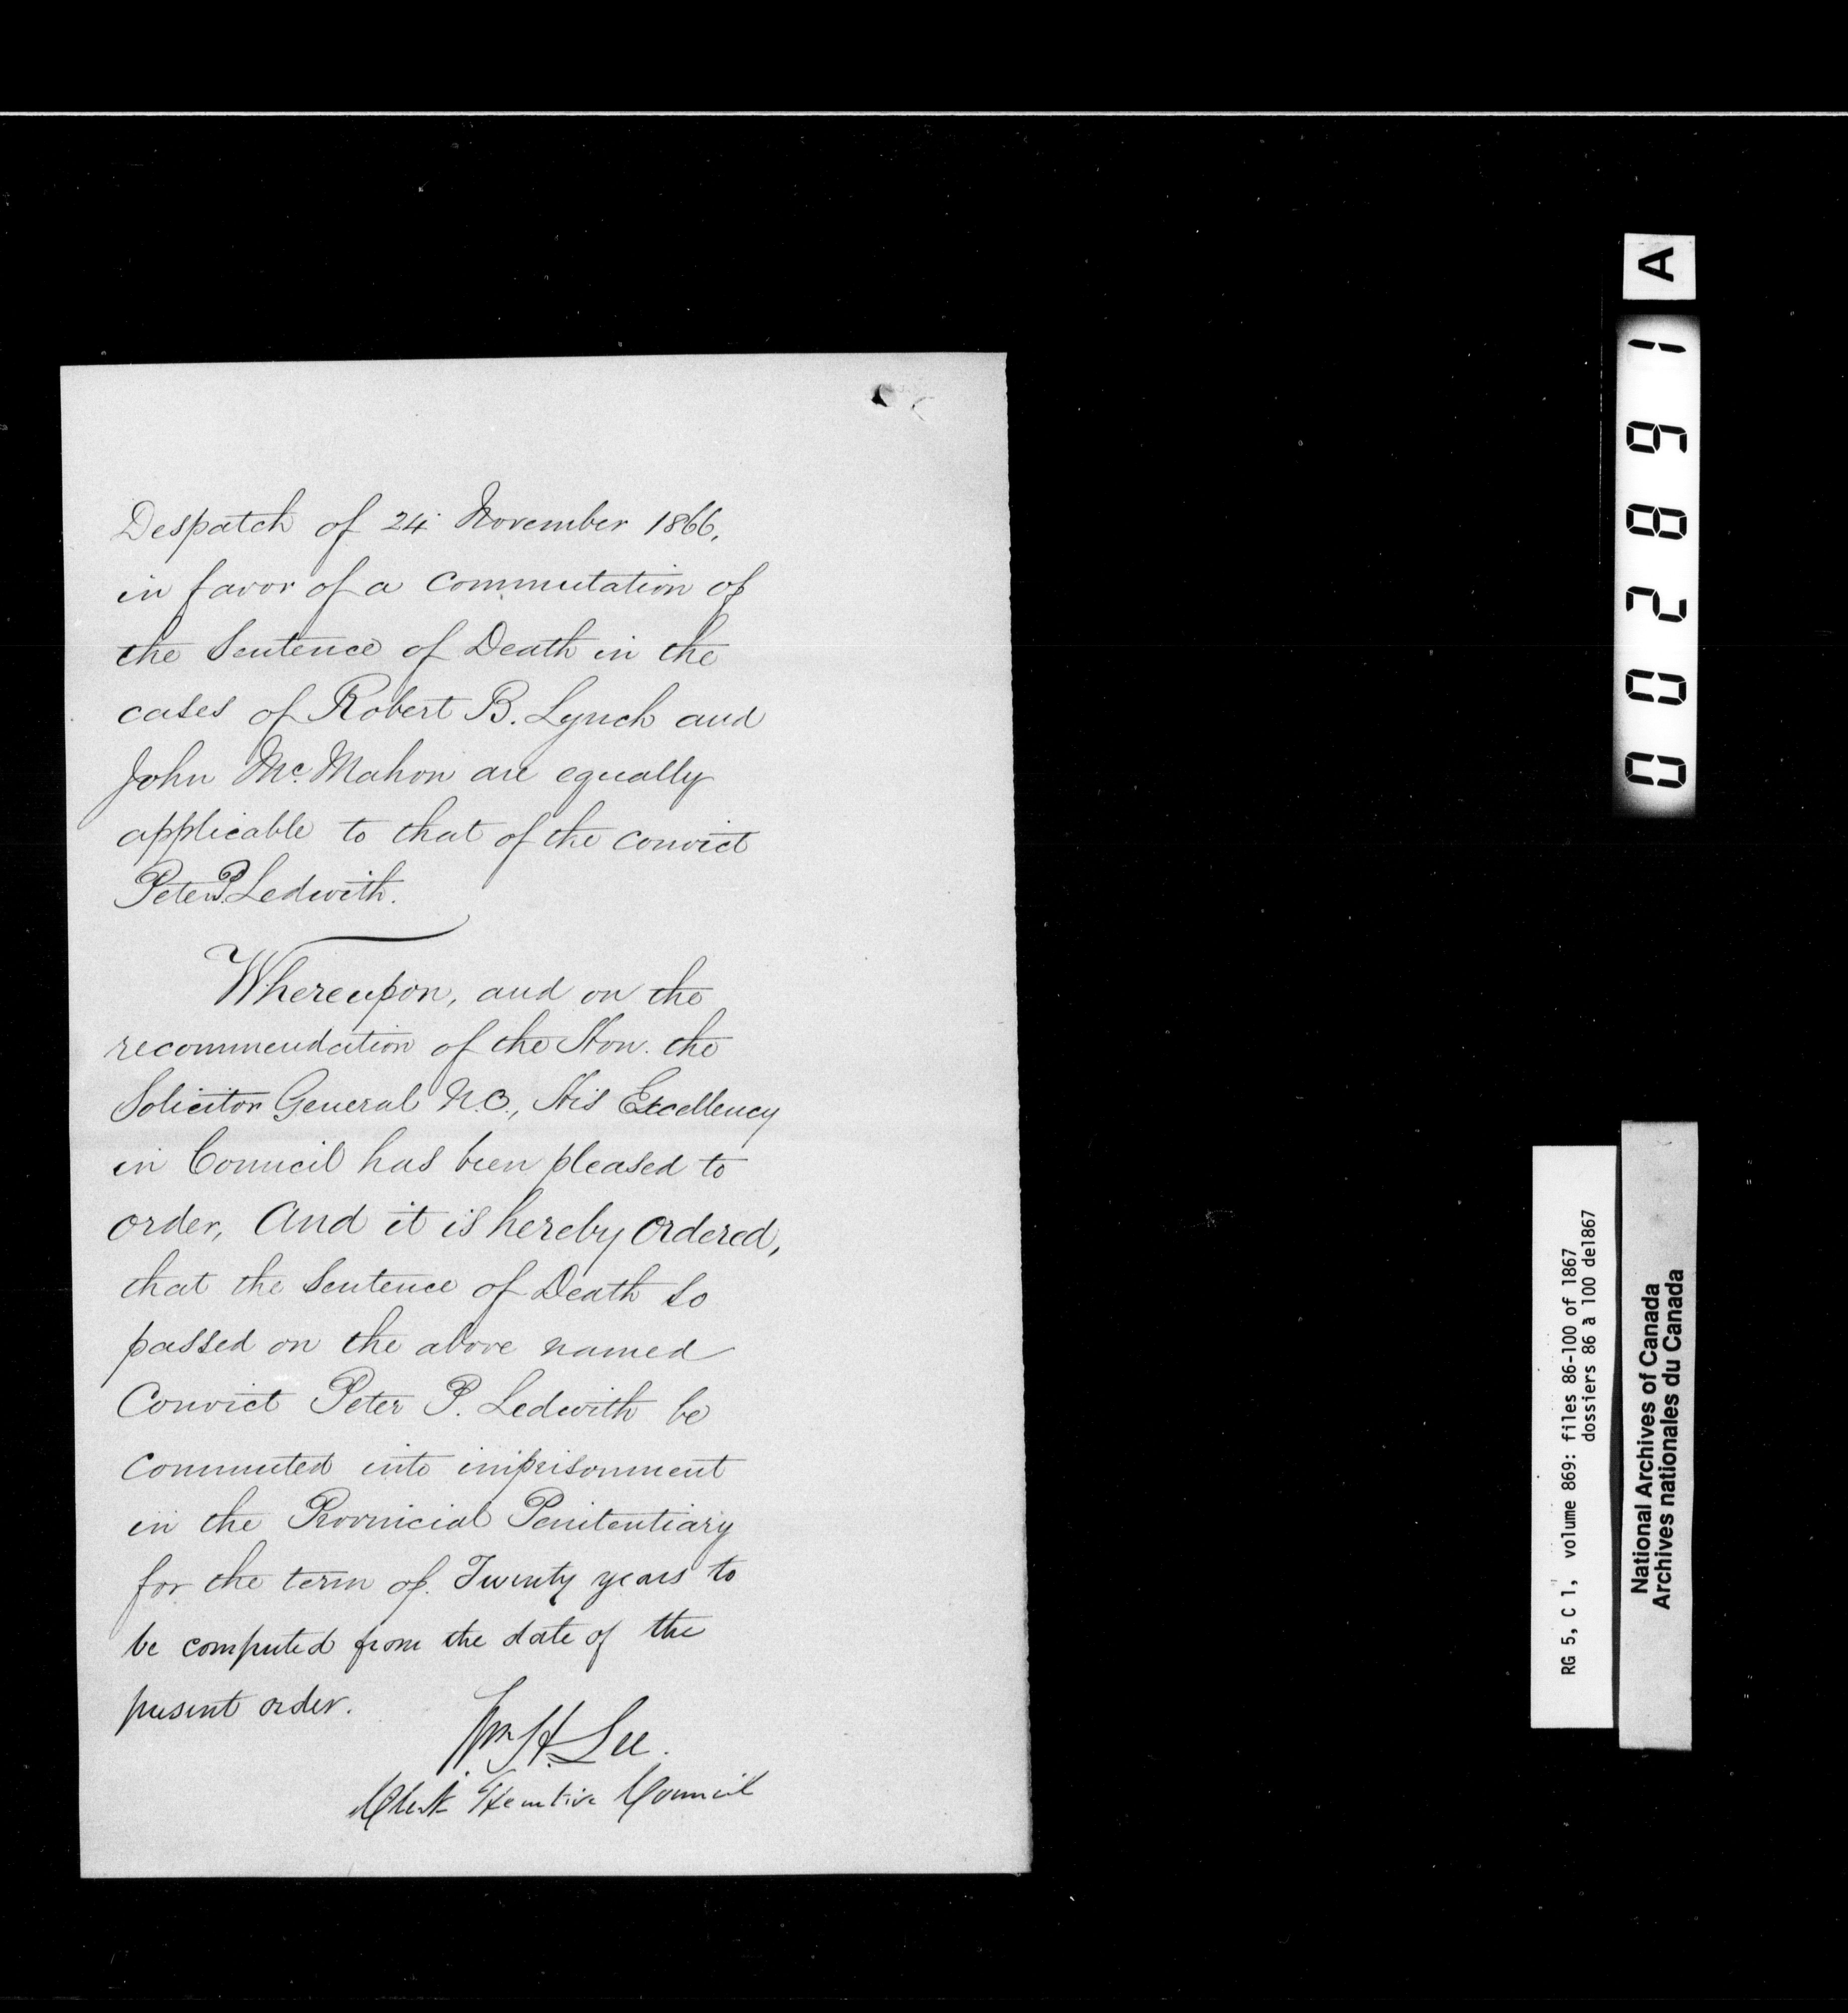 Despatch of 24 November 1866,
in favor of a commutation of
the Sentence of Death in the
cases of Robert B. Lynch and
John Mc. Mahon are equally
applicable to that of the convict
Peter P. Ledwith.
Whereupon, and on the
recommendation of the Hon. the
Solicitor General U.C., His Excellency
in Council has been pleased to
order, And it is hereby Ordered,
that the Sentence of Death so
passed on the above named
Convict Peter P. Ledwith be
commuted into imprisonment
in the Provincial Penitentiary
for the term of Twenty years to
be computed from the date of the
present order.
Wm H. Lee.
Clerk Executive Council
A
002891
RG 5, C 1, volume 869: files 86-100 of 1867
dossiers 86 à 100 de1867
National Archives of Canada
Archives nationales du Canada